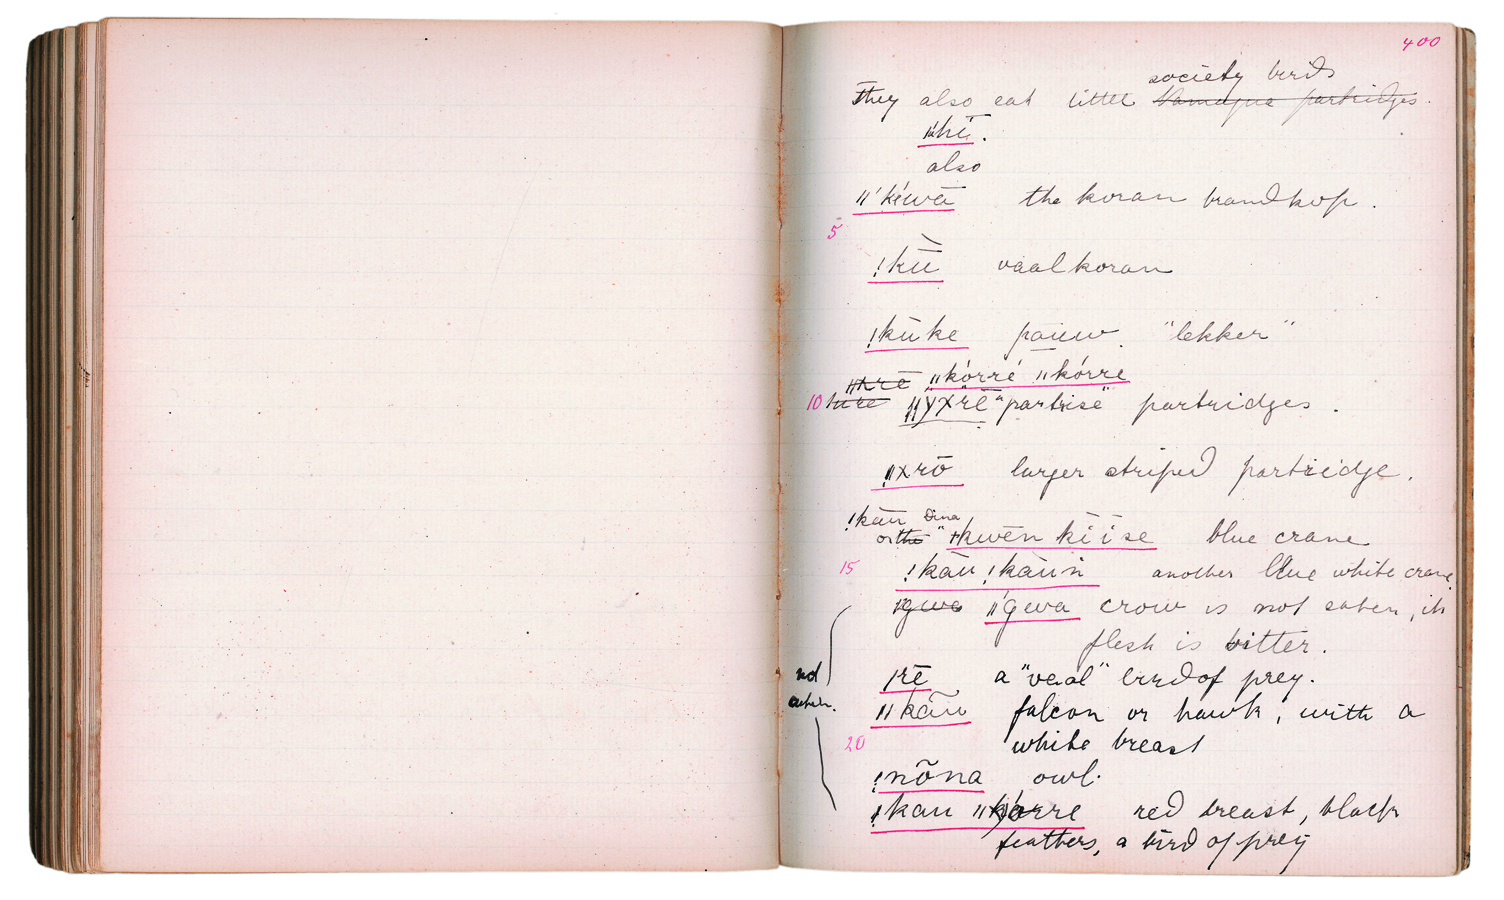 400
society birds
They also eat little Namaqua partridges.
ǁhī.
also
ǁ'kíwā the koran brandkop.
5
!kū̀ vaalkoran
!kūke pauw. "lekker"
ǁxrē ǁkórré ǁkórre
10 ǁyxrē "partrise" partridges.
ǁxrō larger striped partridge.
!kāu Dina
or the "ǂkwēn kīīse blue crane
15 !kāu !kāùn another blue white crane
ǁgwa ǁ'gwa crow is not eaten, its
flesh is bitter.
not
eaten.
|rē a "vaal" bird of prey.
ǁkāũ falcon or hawk, with a
20 white breast
!nõna owl.
!kau ǁkórre red breast, black
feathers, a bird of prey